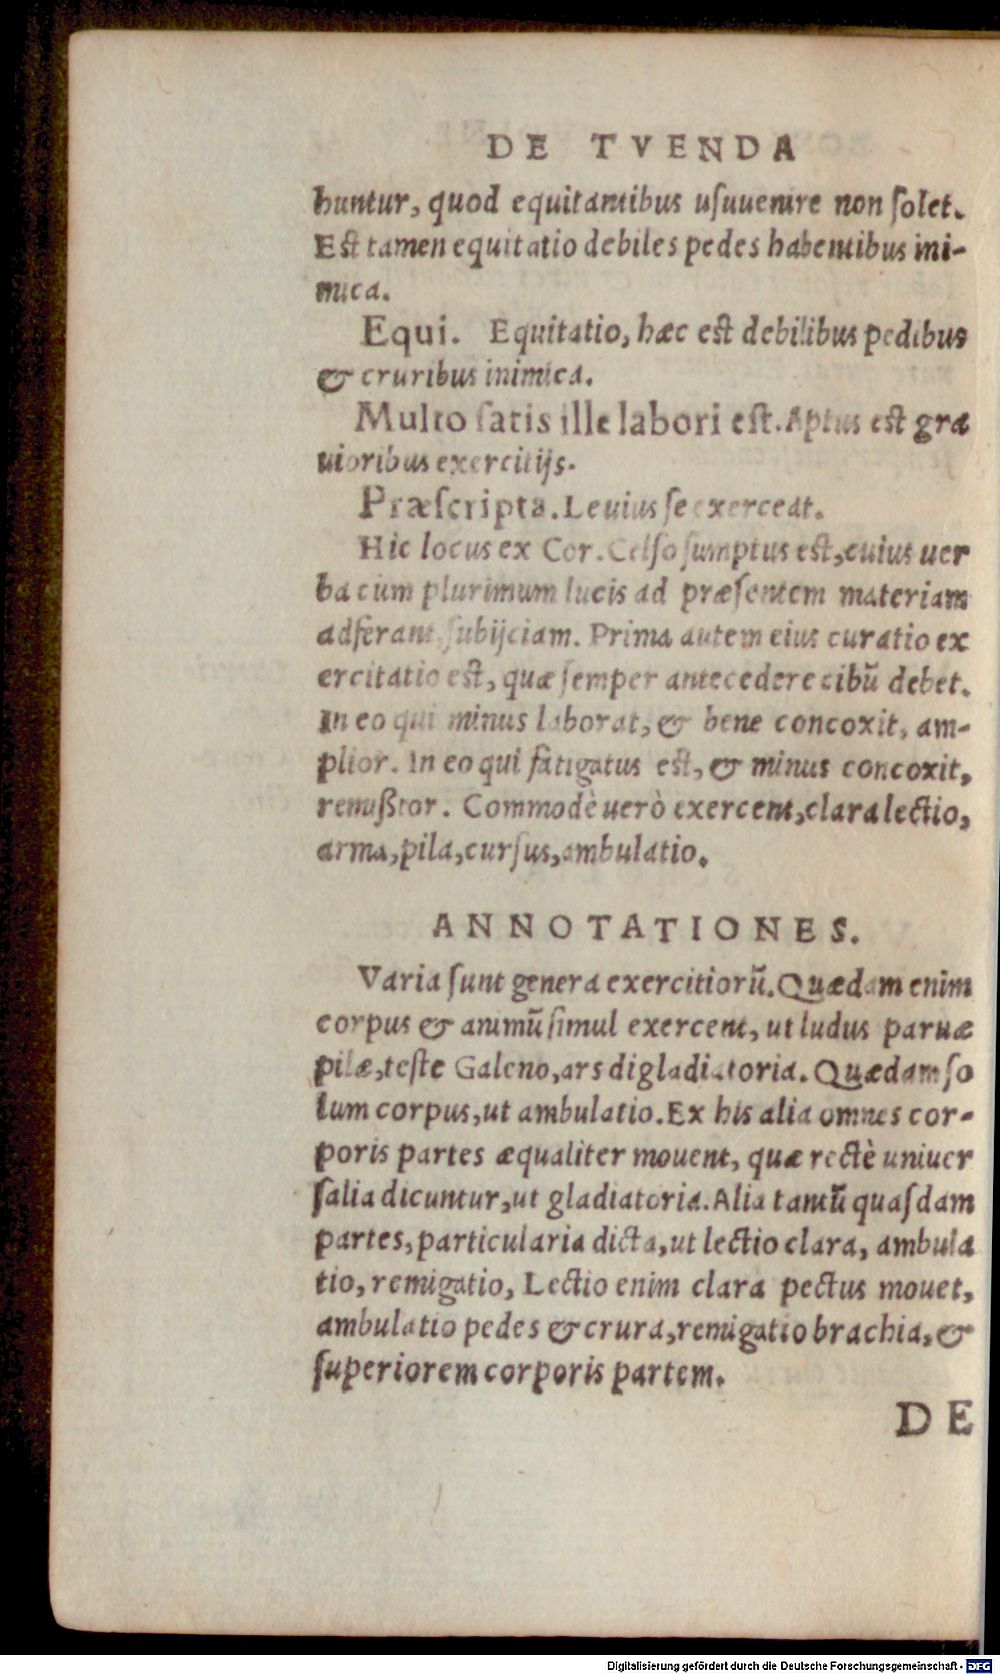 DE TVENDA
huntur, quod equitantibus usuuenire non ſolet.
Eſt tamen equitatio debiles pedes habentibus ini-
mica.
Equi. Equitatio, hæc eſt debilibus pedibus
& cruribus inimica.
Multo ſatis ille labori eſt. Aptus eſt gra
uioribus exercitijs.
Præſcripta. Leuius ſe exerceat.
Hic locus ex Cor. Celſo ſumptus eſt, cuius uer
ba cum plurimum lucis ad præſentem materiam
adferant, ſubijciam. Prima autem eius curatio ex
ercitatio eſt, quæ ſemper antecedere cibũ debet.
In eo qui minus laborat, & bene concoxit, am-
plior. In eo qui fatigatus eſt, & minus concoxit,
remißior. Commodè uerò exercent, clara lectio,
arma, pila, curſus, ambulatio.
ANNOTATIONES.
Varia ſunt genera exercitiorũ. Quædam enim
corpus & animũ ſimul exercent, ut ludus paruæ
pilæ, teſte Galeno, ars digladiatoria. Quædam ſo
lum corpus, ut ambulatio. Ex his alia omnes cor-
poris partes æqualiter mouent, quæ rectè uniuer
ſalia dicuntur, ut gladiatoria. Alia tantũ quaſdam
partes, particularia dicta, ut lectio clara, ambula
tio, remigatio, Lectio enim clara pectus mouet,
ambulatio pedes & crura, remigatio brachia, &
ſuperiorem corporis partem.
DE
Digitalisierung gefördert durch die Deutsche Forschungsgemeinschaft - DFG